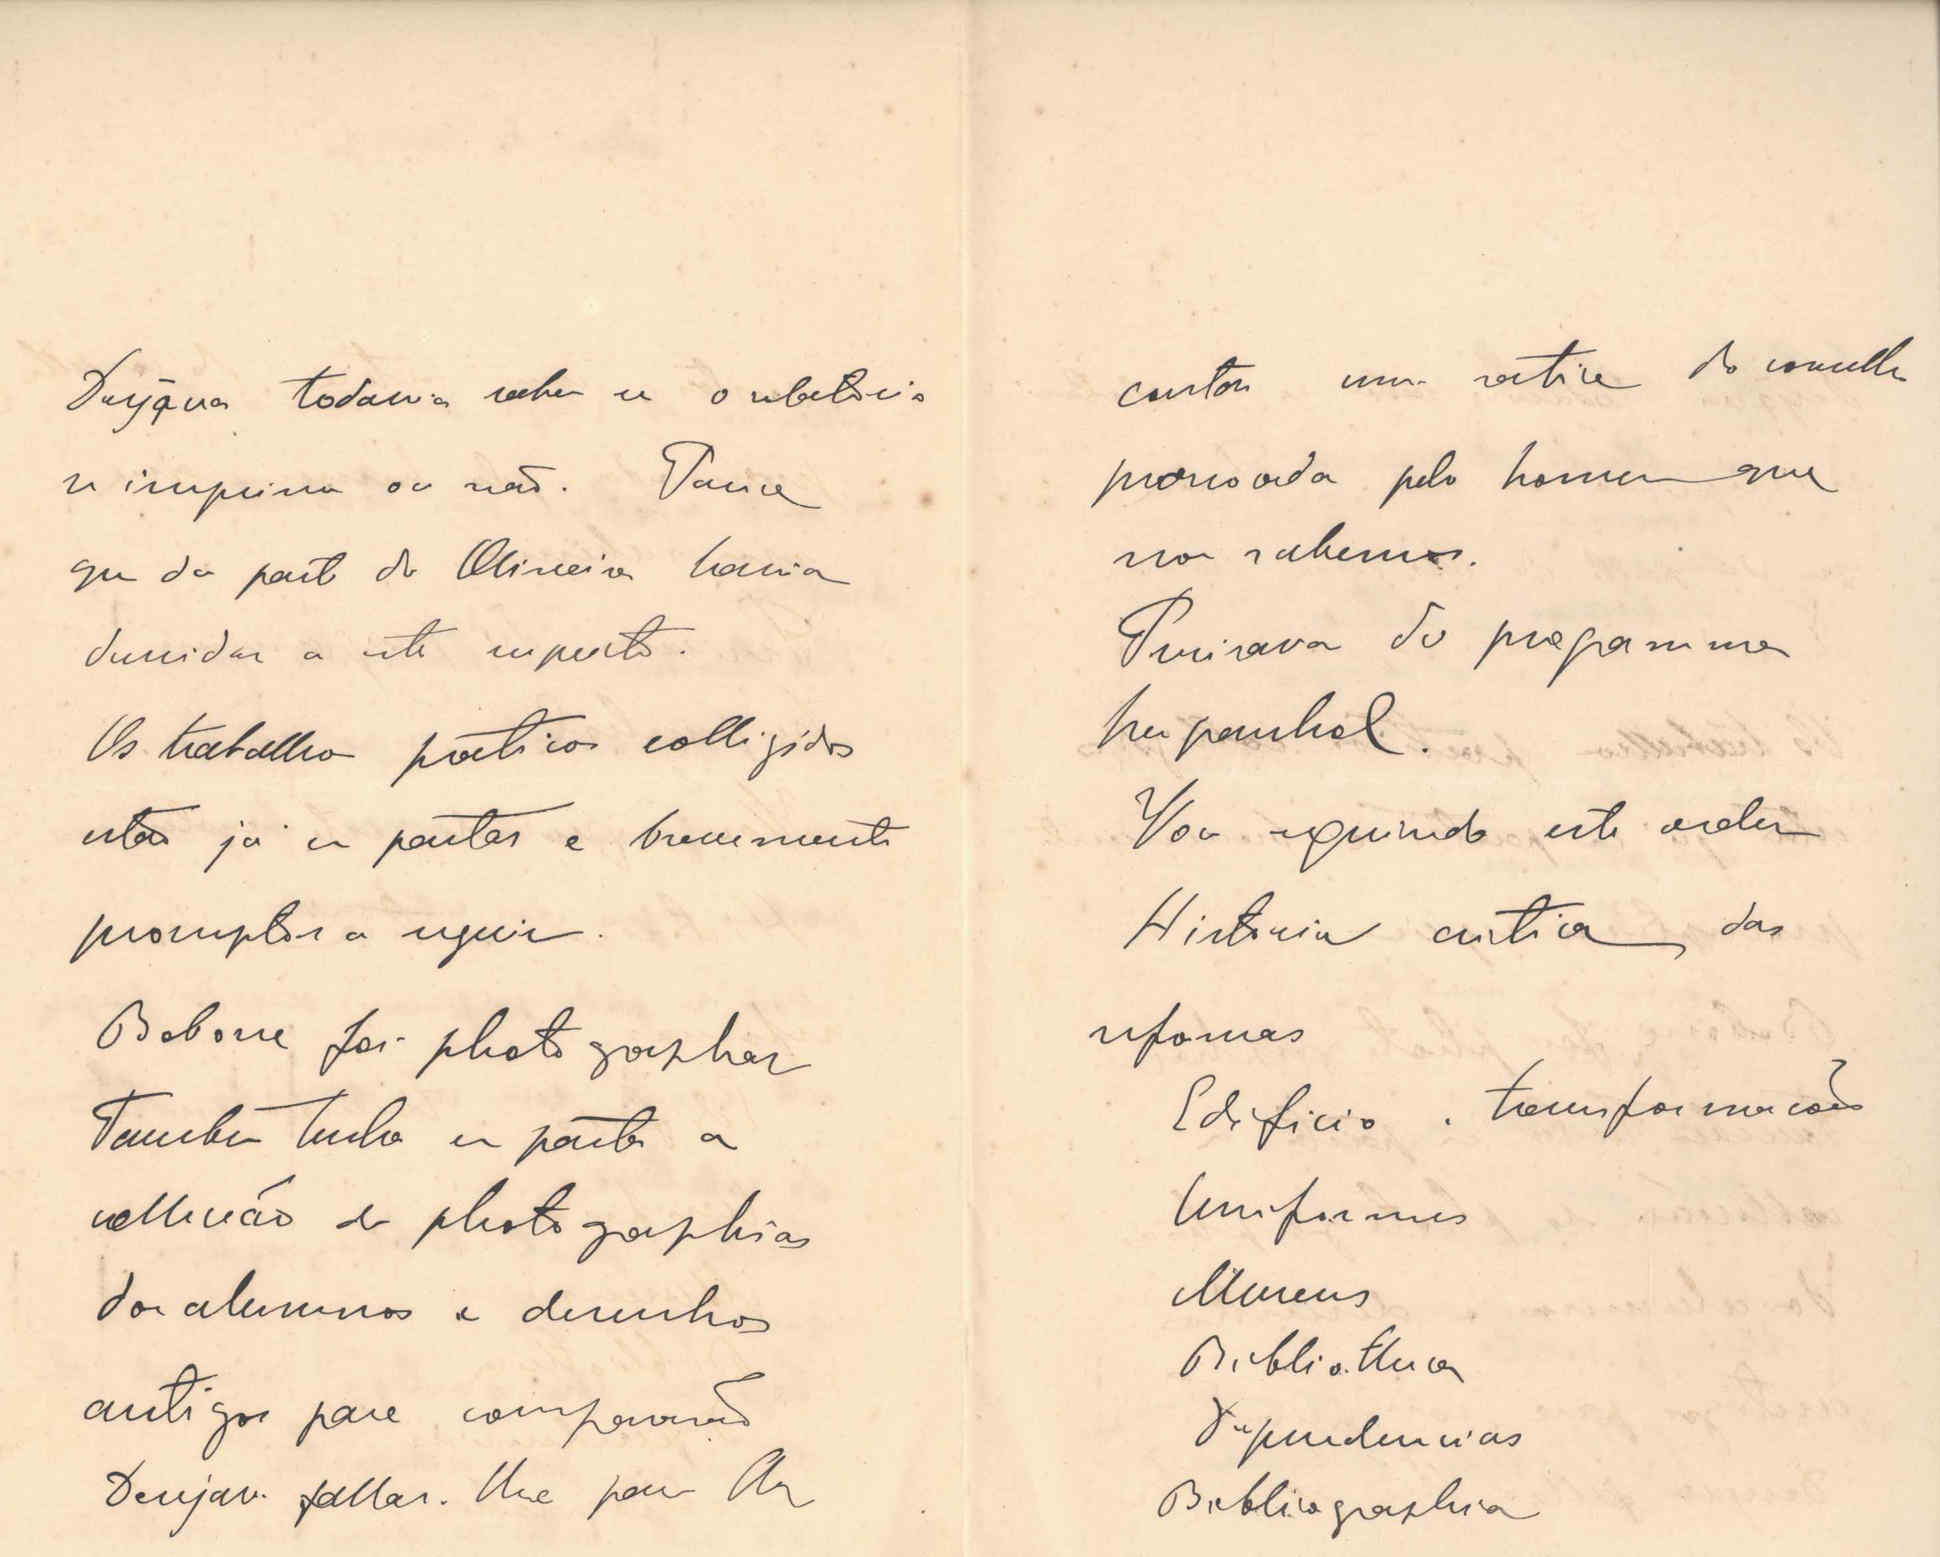 Desejava todavia saber se o relatorio
se imprime ou não. Parece
que da parte do Oliveira havia
duvidas a este respeito.
Os trabalhos práticos colligidos
estão já em pastas e brevemente
promptos a seguir.
Bobone foi photographar
Também tenho em pasta a
collecção de photographias
dos alumnos e desenhos
antigos para comparação
Desejava fallar-lhe para lhe
contar uma do conselho
provocada pelo homem que
nos sabemos.
Precisava do programma
hespanhol.
Vou seguindo esta ordem
Historia critica das
reformas
Edificio. transformações
Uniformes
Museus
Bibliotheca
Dependencias
Bibliographia